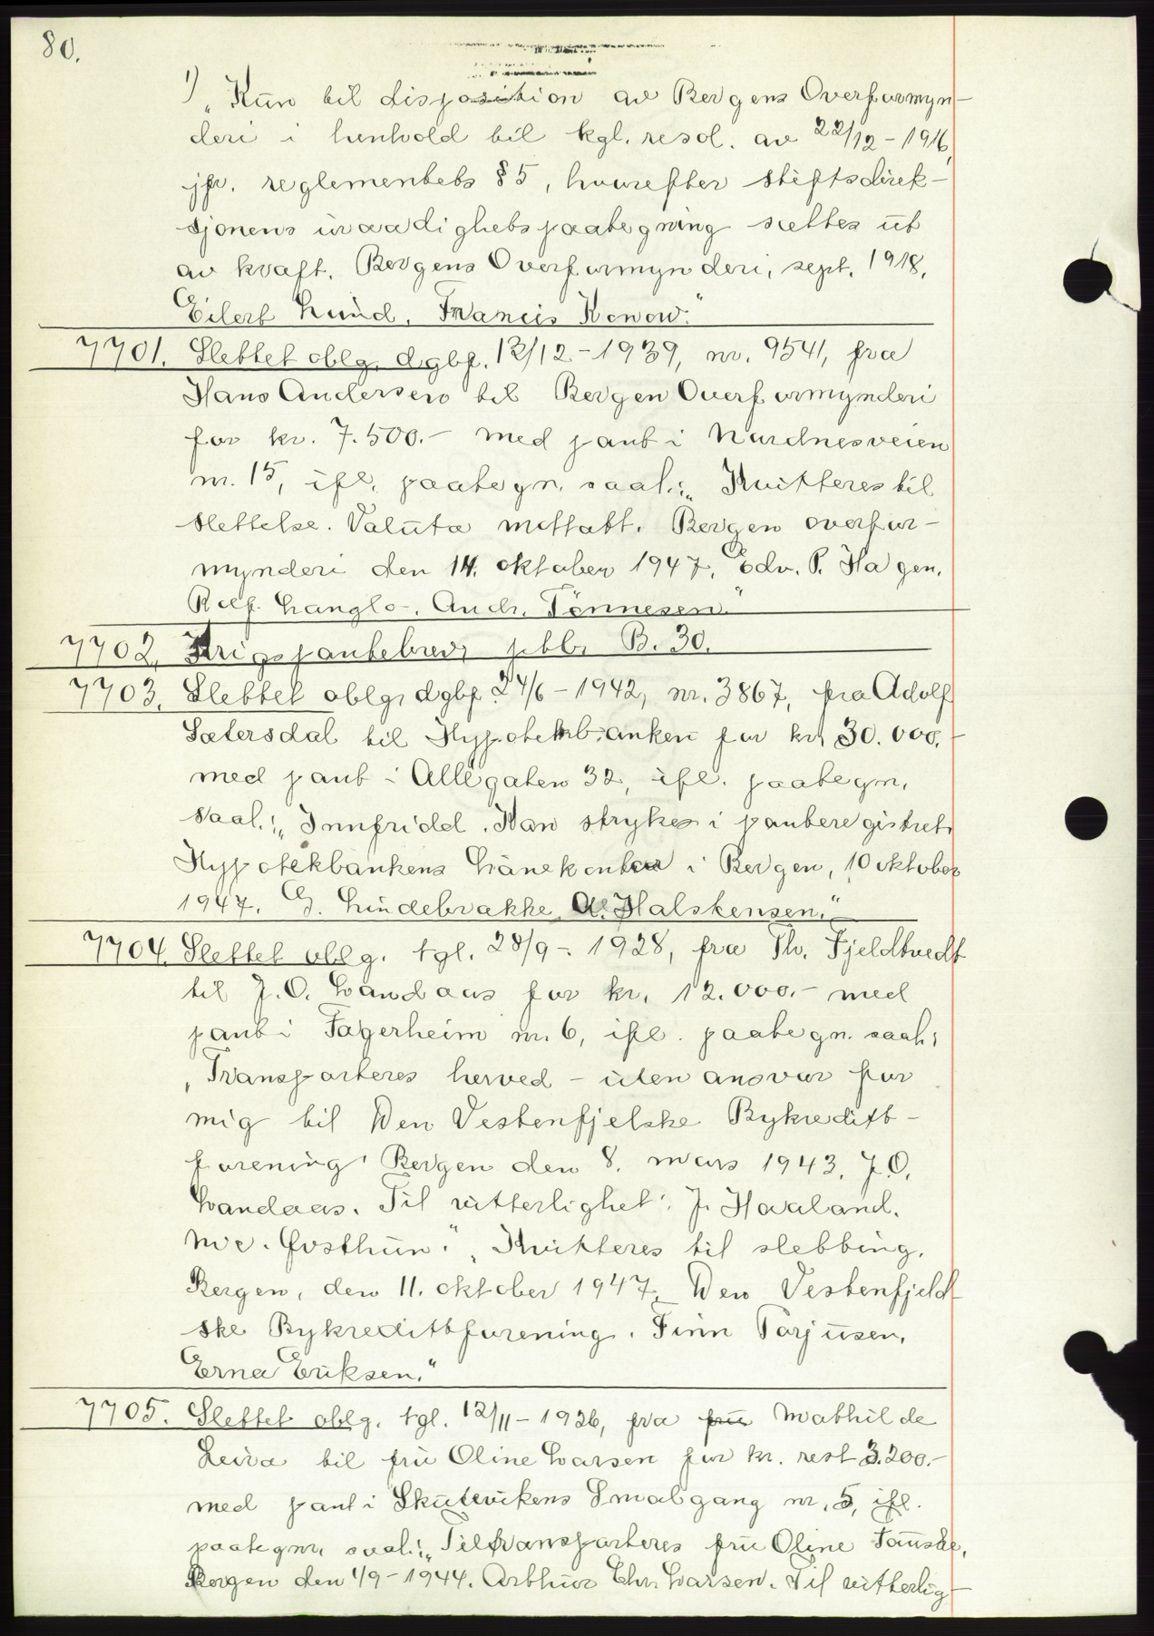 80.
1) „Kun til disposition av Bergens Overformyn-
deri i henhold til kgl. resol. av 22/12 - 1916,
jfr. reglementets § 5, hvorefter stiftsdirek-
sjonens uraadighetspaategning sættes ut
av kraft. Bergens Overformynderi, sept. 1918.
Eilert Lund. Francis Konow."
7701. Slettet oblg. dgbf. 12/12 - 1939, nr. 9541, fra
Hans Andersen til Bergen Overformynderi
for kr. 7.500.- med pant i Nordnesveien
nr. 15, ifl. paategn. saal.: „Kvitteres til
slettelse. Valuta mottatt. Bergen overfor-
mynderi den 14. oktober 1947. Edv. P. Hagen.
Rolf Langlo. Andr. Tønnesen."
7702. Krigspantebrev, pbb. B. 30.
7703. Slettet oblg. dgbf. 24/6 - 1942, nr. 3867, fra Adolf
Sætersdal til Hypotekbanken for kr. 30.000.-
med pant i Allégaten 32, ifl. paategn.
saal.: „Innfridd. Kan strykes i panteregistret.
Hypotekbankens Lånekontor i Bergen, 10 oktober
1947. G. Lindebrække. A. Halskensen."
7704. Slettet oblg. tgl. 28/9 - 1928, fra Th. Fjeldtvedt
til J.O. Landaas for kr. 12.000.- med
pant i Fagerheim nr. 6, ifl. paategn. saal.:
„Transporteres herved - uten ansvar for
mig til Den Vestenfjelske Bykreditt-
forening. Bergen den 8. mars 1943. J.O.
Landaas. Til vitterlighet: J. Haaland.
Nic. Østhun." „Kvitteres til sletting.
Bergen, den 11. oktober 1947. Den Vestenfjeld-
ske Bykredittforening. Finn Torjusen.
Erna Eriksen."
7705. Slettet oblg. tgl. 12/11 - 1926, fra fru Mathilde
Leira til fru Oline Larsen for kr. rest 3.200.-
med pant i Skutevikens Smalgang nr. 5, ifl.
paategn. saal.: „Tiltransporteres fru Oline Fauske.
Bergen den 1/9 - 1944. Arthur Chr. Larsen. Til vitterlig-